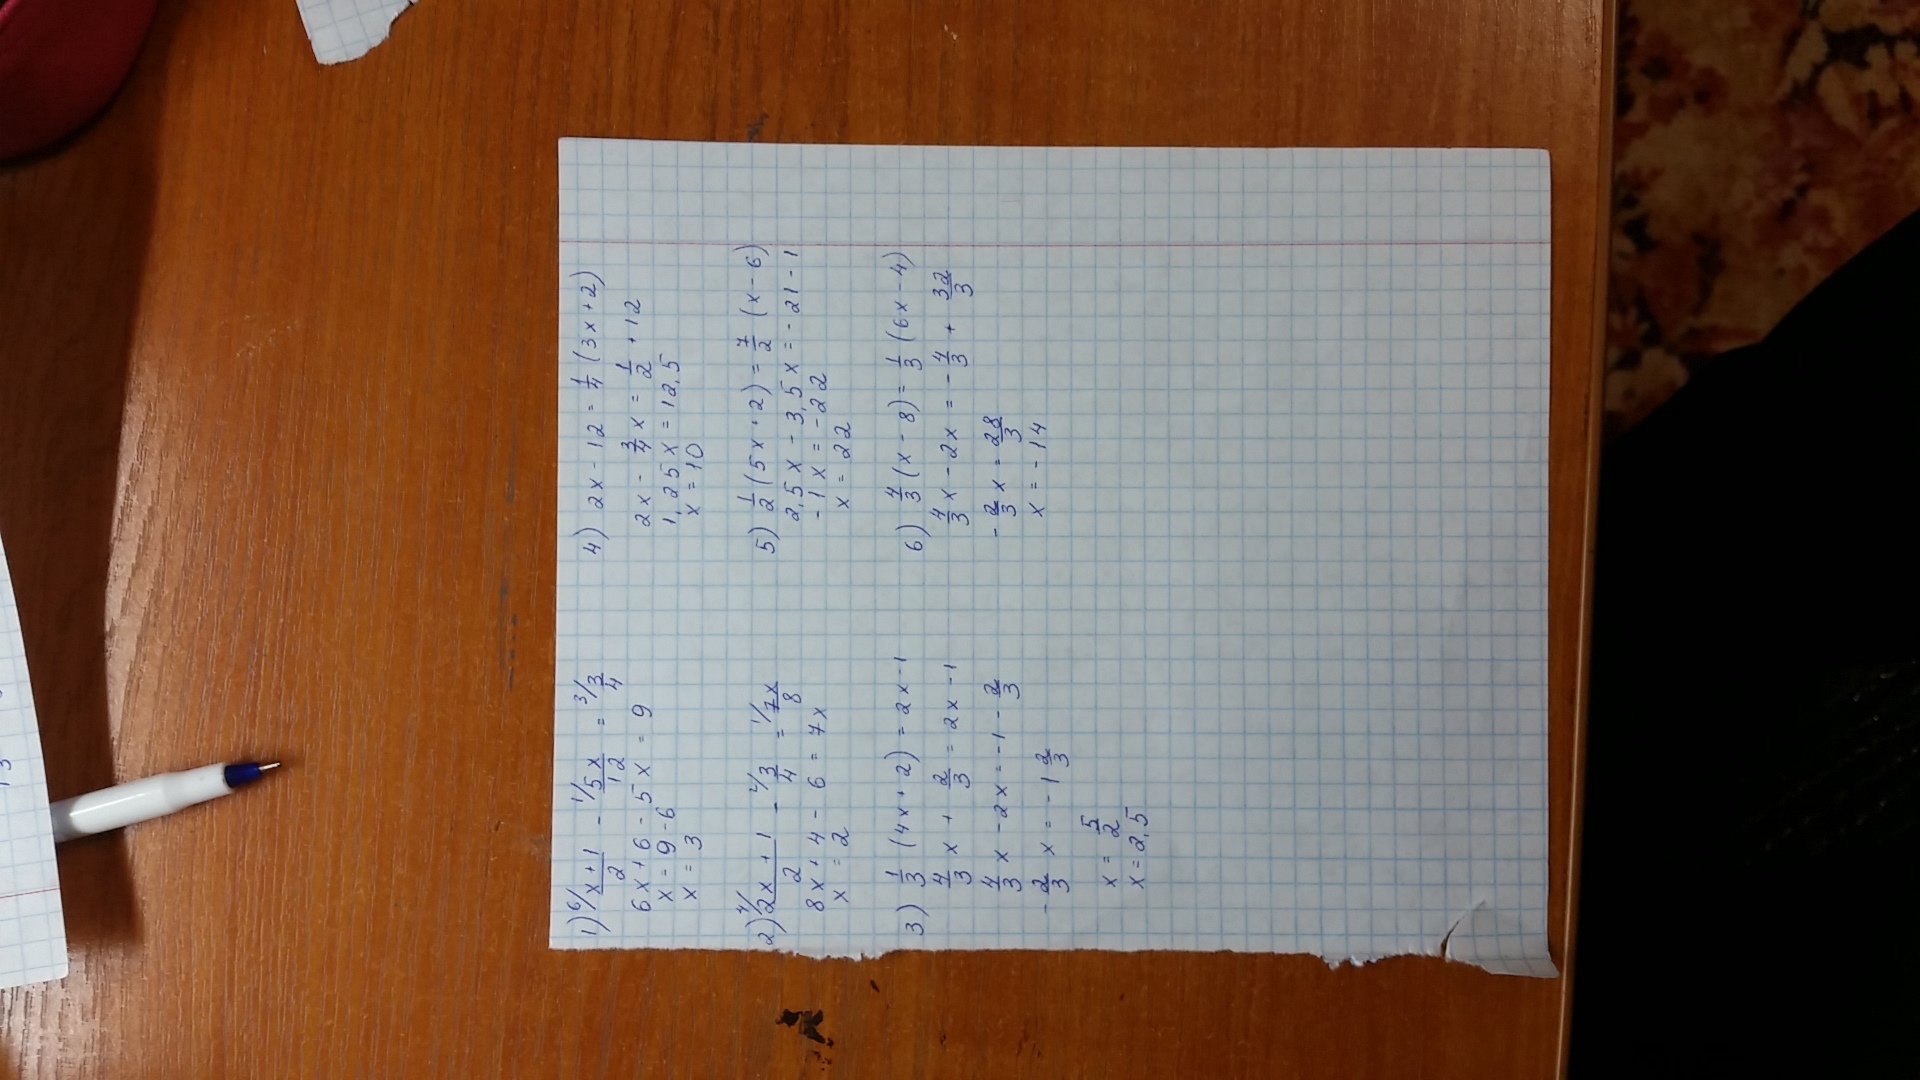 1) 6/ x+1/2 - 1/ 5x/12 = 3/ 3/4
6x+6-5x=9
x=9-6
x=3
2) 4/ 2x+1/2 - 2/ 3/4 = 1/ 7x/8
8x+4-6=7x
x=2
3) 1/3 (4x+2) = 2x-1
4/3 x + 2/3 = 2x-1
4/3 x - 2x = -1 - 2/3
-2/3 x = -1 2/3
x = 5/2
x = 2,5
4) 2x-12 = 1/4 (3x+2)
2x - 3/4 x = 1/2 + 12
1,25x = 12,5
x = 10
5) 1/2 (5x+2) = 7/2 (x-6)
2,5x - 3,5x = -21-1
-1x = -22
x = 22
6) 4/3 (x-8) = 1/3 (6x-4)
4/3 x - 2x = -4/3 + 32/3
-2/3 x = 28/3
x = -14